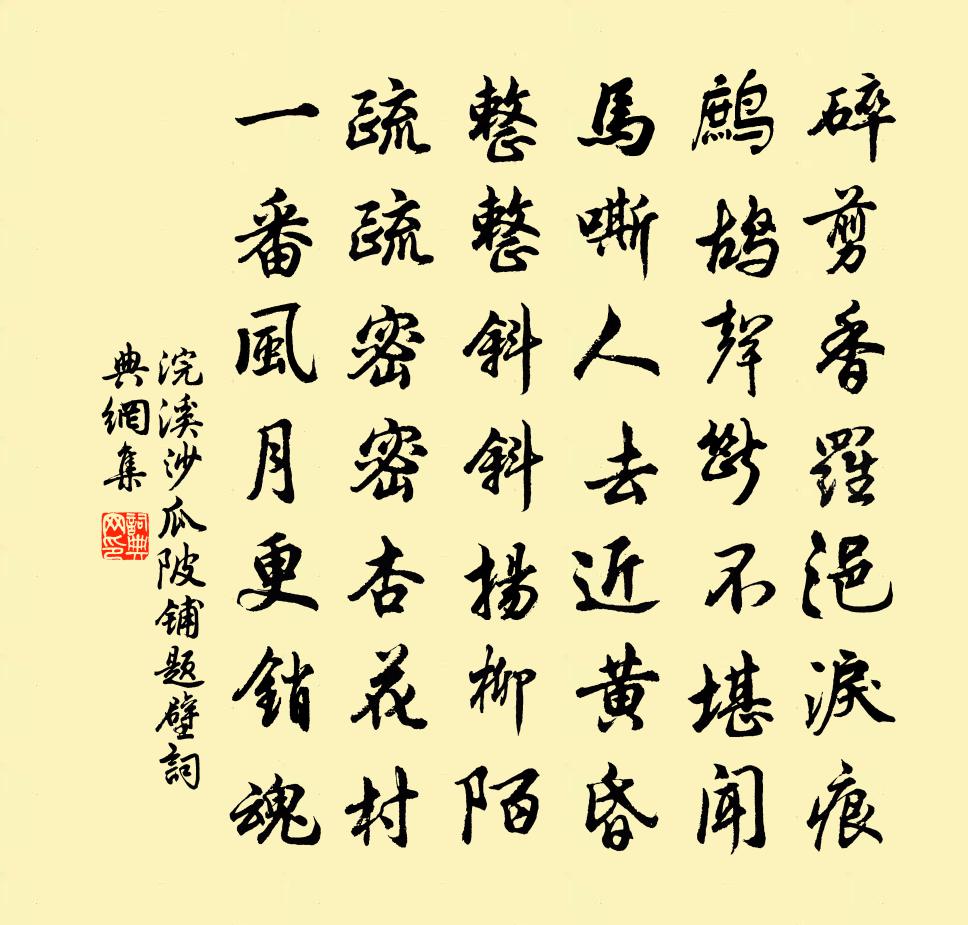 碎剪香羅浥淚痕
鷓鴣聲斷不堪聞
馬嘶人去近黃昏
整整斜斜揚柳陌
疏疏密密杏花村
一番風月更銷魂
浣溪沙瓜陂铺题壁詞
典網集
詞典网印